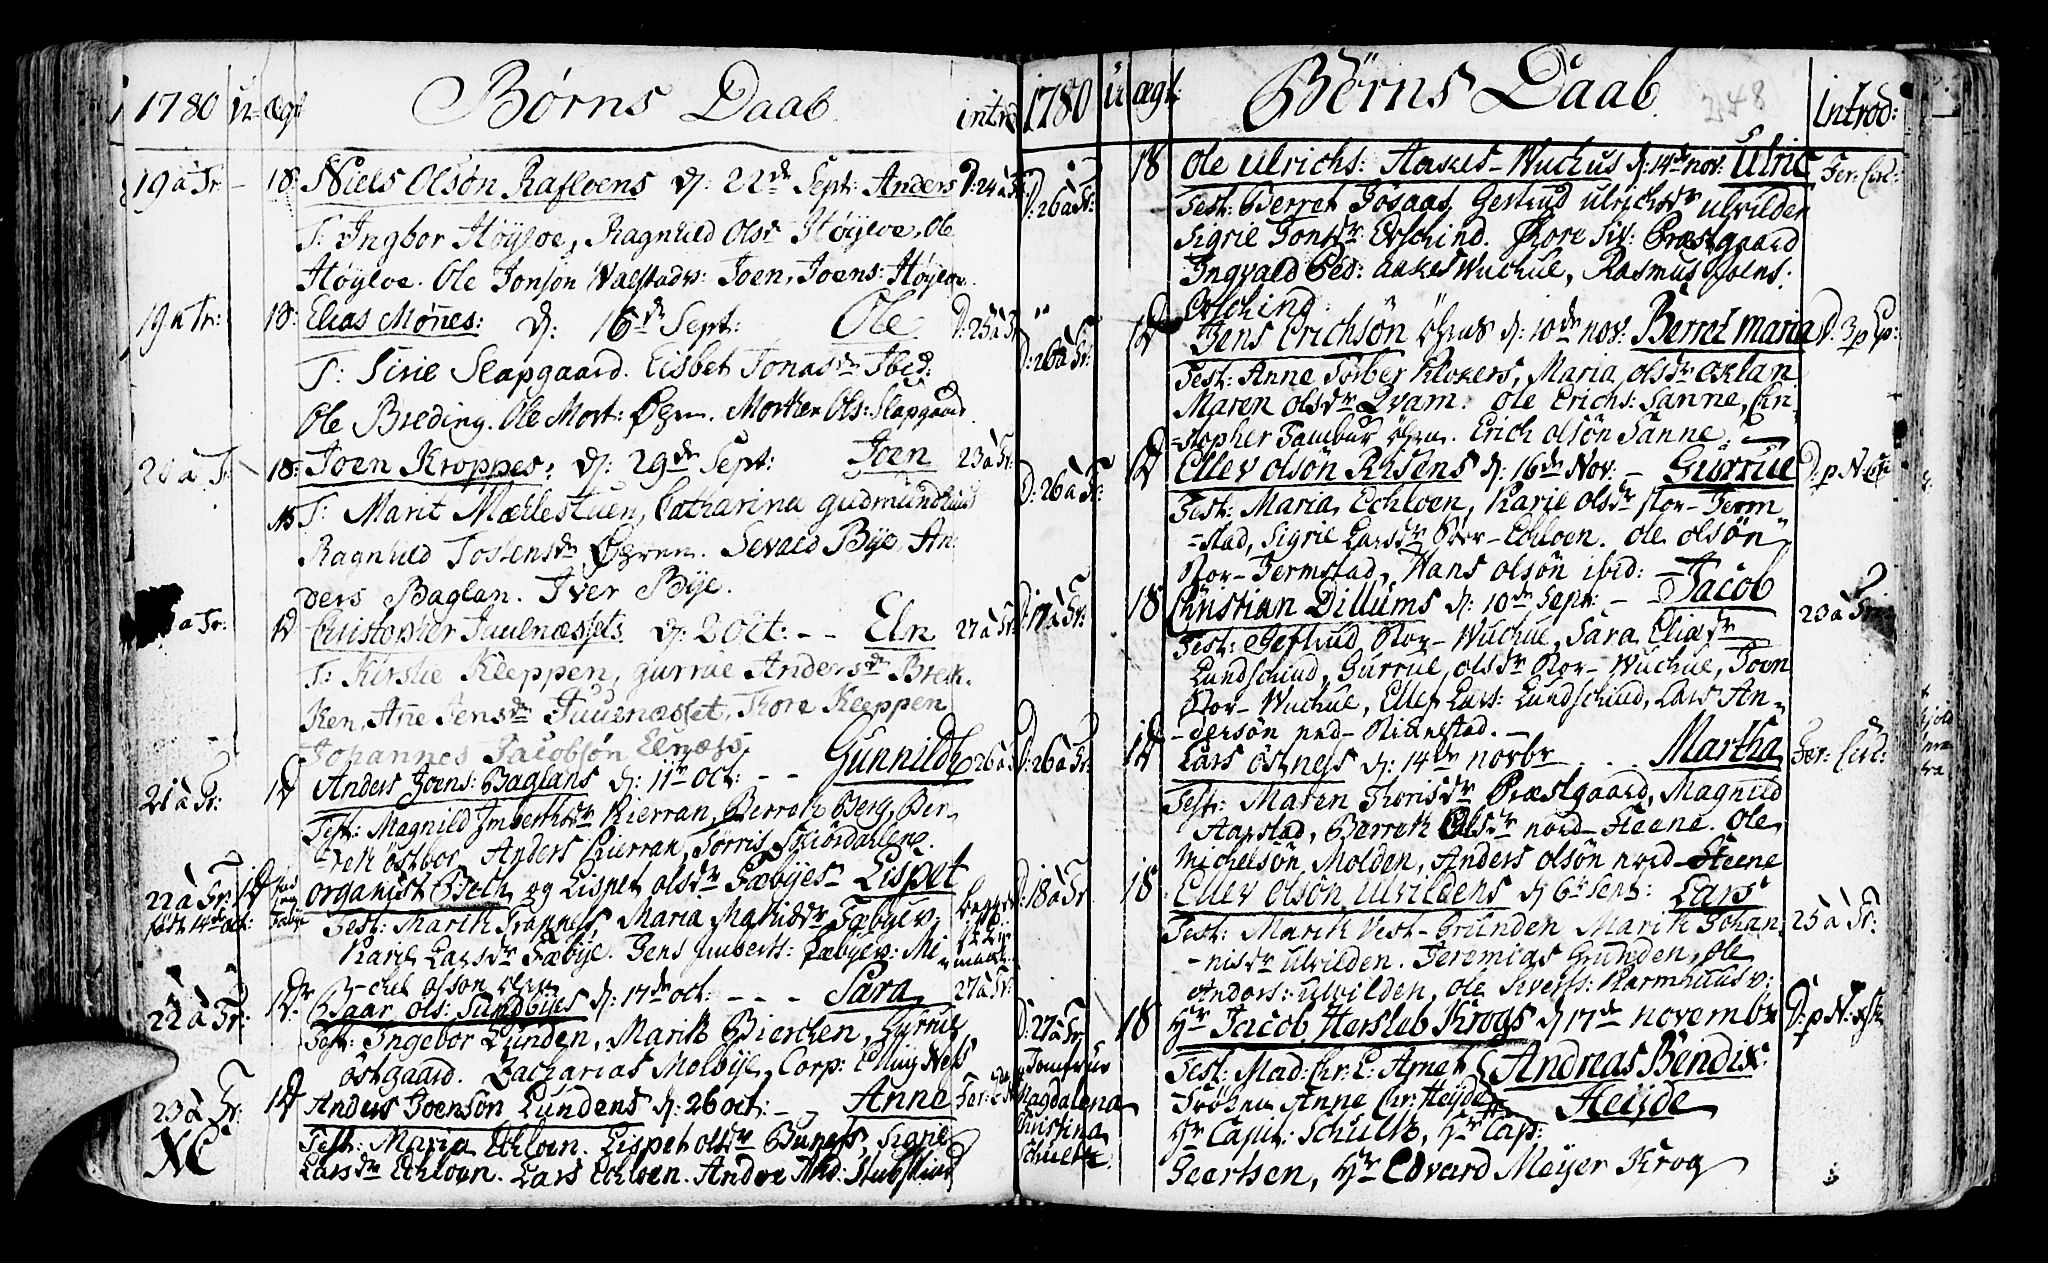 1780 u- ægt Børns Daab. introd
19 à Tr: - 18: Niels Olsøn Rafloens d: 22de Sept: Anders D: 24 à Tr
T: Ingbor Høyloe, Ragnhild Olsdr Høyloe, Ole
Høyloe. Ole Jonsøn Walstadv: Joen, Joens: Høyloe.
19 a Tr: 18: Elias Mønes: d: 16de Sept: Ole D: 25 à Tr
T: Sirie Slapgaard. Lisbet Jonasdr Ibid:
Ole Breding. Ole Mort: Øgren. Morthen Ols: Slapgaard.
à T: 18: Joen Kroppes: d: 29de Sept: Joen 23 à Tr:
T: Marit Mæhlestuen, Catharina gudmundhuus
Ragnhild Tostensdr Øgren. Sevald Bye, An-
ders Baglan. Iver Bye.
a Tr: 12 Christopher Juuenæssets d: 2 oct: - - Eln 27 à Tr:
T: Kirstie Kleppen, gurrue Andersdr Brek-
ken, Ane Jensdr Juuenæsset, Thore Kleppen
Johannes Jacobsøn Elnæss.
21 à Tr: 12 Anders Joens: Baglans d: 11te oct: - - Gunnild 26 à
Test: Magnild Imberthsdr Kierran, Berreth Berg, Ber-
reth østbor, Anders Kierran, Sørris Skiørdalene.
22 à Tr: 12 organist Both og Lispet olsdr Fæbyes Lispet
født 14de oct: Test: Marith Trapnes, Maria Mathisdr Fæbyev:
Karie Larsdr Fæbye. Jens Imberts: Fæbyev: Mi-
chel olsøn
22 à Tr: 12. Baar ols: Sundbyes d: 17de oct: - - - Sara 27 à Tr:
Test: Ingebor Lunden, Marith Bierchen, Gurrue
østgaard. Zacharias Molbye, Corp: Elling Næss
23 à Tr: 12 Anders Joensøn Lundens d: 26 oct: - , Anne
Test: Maria Echloen. Lispet olsdr Buness, Sigrie
Larsdr Echloen. Lars Echloen. Andre And: Stubskind
1780 ü ægt: Børns Daab. 248 Introd:
D: 26 à Tr: 18 Ole Ulrichs: Aakes-Wuchus d: 14de nov: Ulric Fer: Circ:
Test: Berret Jøsaas, Gertrud Ulrichsdr ulvilden
Sigrie Jonsdr Erschind. Thore Siv: Præstgaard
Ingvald Ped: aakesWuchue, Rasmus Joens:
Erschind.
D: 26 à Tr: 12 Jens Erichsøn Øgrens d: 10de nov: Berret Maria D: 3 p Ep:
Test: Anne Torber Klokers, Maria olsdr oxlan
Maren olsdr Qvam. ole Erichs: Sanne, Chri-
-stopher Tambur Øgren. Erich olsøn Sanne.
D: 26 à Tr: 12 Ellev olsøn Risens d: 16de Nov: - Gurrue D: p N:
Test: Maria Echloen, Karie olsdr stor-Jerm
-stad, Sigrie Larsdr Øver-Echloen. ole olsøn
Nor-Jermstad, Hans olsøn ibid:
D: 17 à Tr: 18 Christian Dillums d: 10de Sept: - Jacob 23 à Tr:
Test: Gertrud Nor-Wuchue, Sara Eliæsdr
Lundschind, Gurrue olsdr Nor-Wuchue, Joen
Nor-Wuchue, Ellef Lars: Lundschind, Lars An-
-dersøn ned- .-
D: 26 à Tr: 12 Lars østness d: 14de novbr . . Martha Fer: Circ:
Test: Maren Thorisdr Præstgaard, Magnild
Aapstad, Berreth Olsdr nord-Steene. Ole
Michelsøn Molden, Anders olsøn nord-Steene
D: 18 à Tr 18 Ellev Olsøn Ulvildens d 6te Sept: Lars 25 à Tr:
Test: Marith Vest-Grunden Marith Johan-
-nisdr ulvilden. Jeremias Grunden, ole
Anders: ulvilden, ole Siverss: Karmhuus v:
D: 27 à Tr 18 Hr Jacob Hersleb Krogs d 17de novembr D: p N:
Jomfrue Test: Mad: Chr: E: Arnet Andreas Bendix:
Magdalena Frøken Anne Chr: Heyde Heyde
Christina Hr Capit: Schultz, Hr Cap:
Schultz. Geertsen, Hr Edvard Meyer Krog